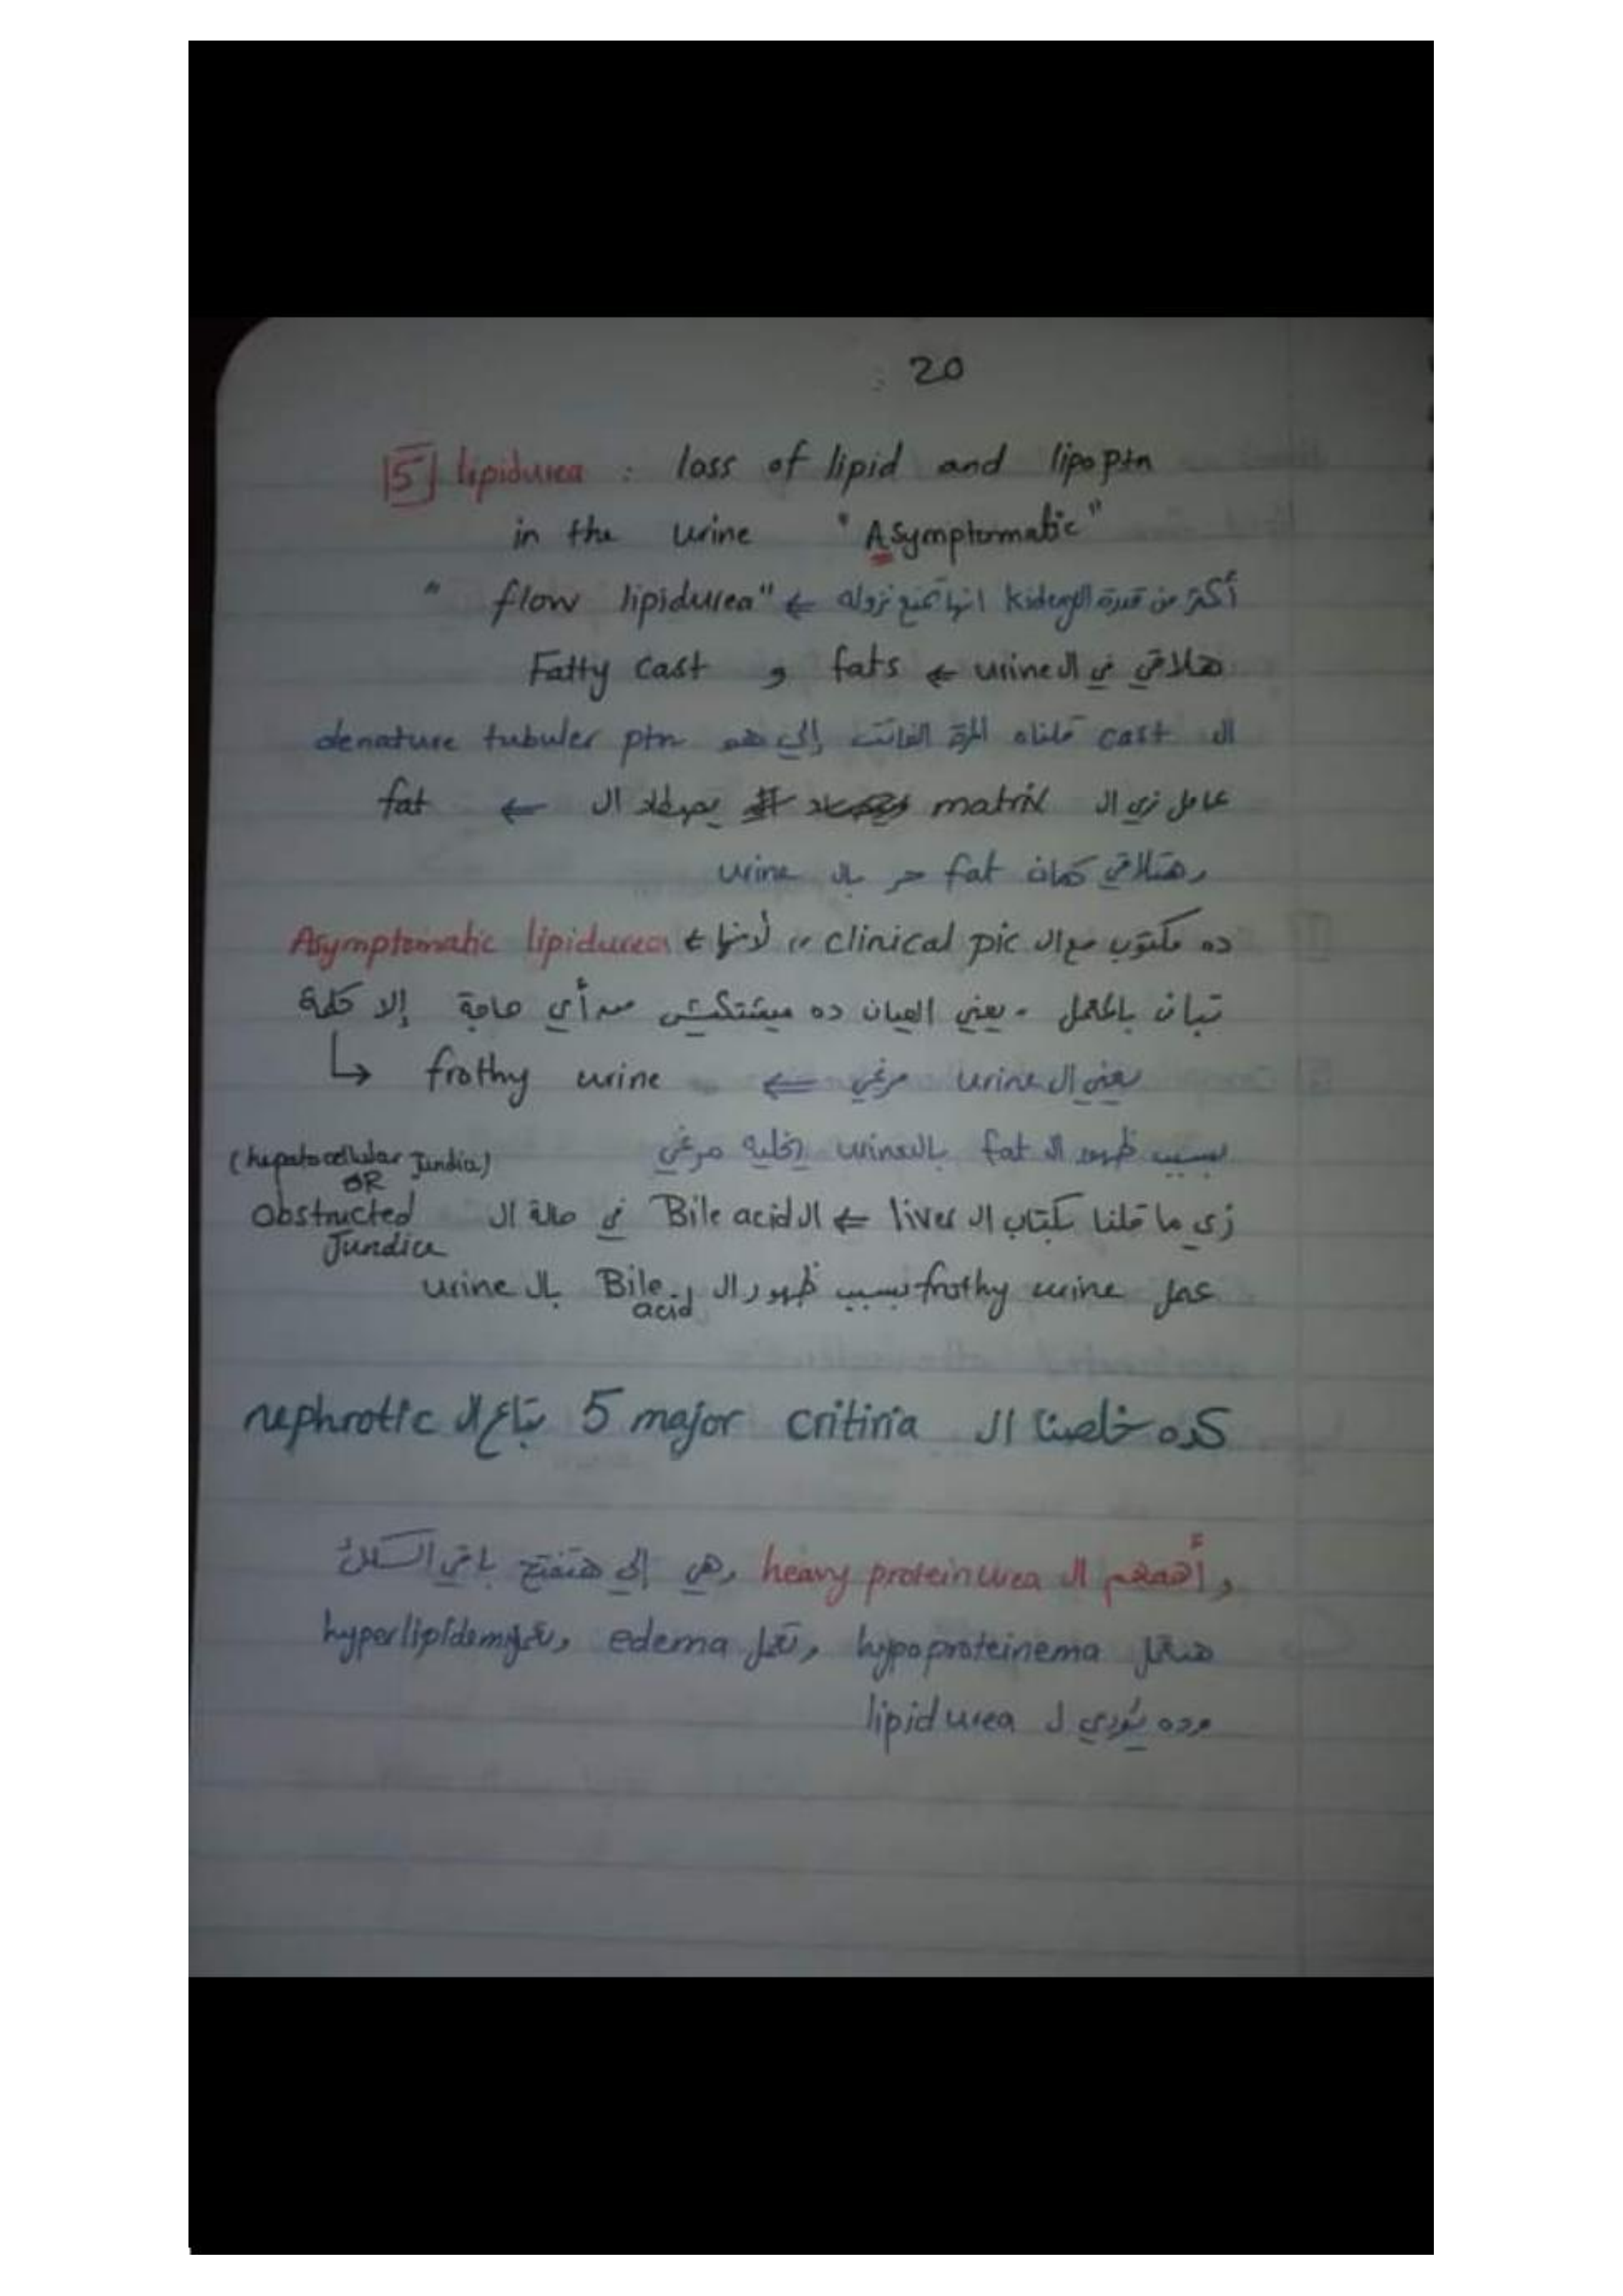 20
[5] lipidurea : loss of lipid and lipoptn
in the urine "Asymptomatic"
أكتر من قدرة الـ kidney انها تمنع نزوله ⇐ "flow lipidurea"
هلاقي في الـ urine ⇐ fats و Fatty cast
الـ cast قلناه المرة الفاتت إلي هو denature tubuler ptn
عامل زي الـ matrix يصطاد الـ ⇐ fat
وهتلاقي كمان fat حر بالـ urine
ده مكتوب مع الـ clinical pic ،، لأنها ⇐ Asymptomatic lipidurea
تبان بالمعمل - يعني العيان ده ميشتكيش من أي حاجة إلا كلمة
↳ frothy urine ⇐ يعني الـ urine مرغي
بسبب ظهور الـ fat بالـ urine يخليه مرغي
(hepatocellular Jundia)
OR
زي ما قلنا بكتاب الـ liver ⇐ الـ Bile acid في حالة الـ Obstructed
Jundice
عمل frothy urine بسبب ظهور الـ Bile acid بالـ urine
كده خلصنا الـ 5 major critiria بتاع الـ nephrotic
و أهمهم الـ heavy proteinurea وهي إلي هتفتح باقي السكك
هتعمل hypoproteinema وتعمل edema وتعمل hyperlipidemia
وده يؤدي لـ lipidurea